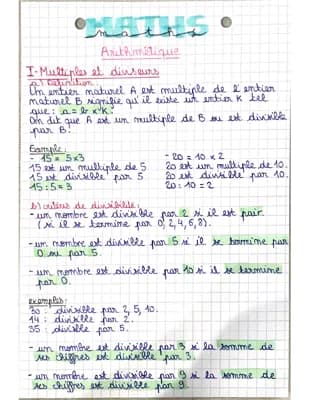 MATHS
maths
Arithmétique
I-Multiples et diviseurs
a) Définition
Un entier naturel A est multiple de l'entier
naturel B signifie qu'il existe un entier K tel
que : a = b x K.
On dit que A est un multiple de B ou est divisible
par B.
Exemple :
- 15 = 5 x 3
15 est un multiple de 5
15 est divisible par 5
15 : 5 = 3
- 20 = 10 x 2
20 est un multiple de 10.
20 est divisible par 10.
20 : 10 = 2
b) critères de divisibilité :
- un nombre est divisible par 2 si il est pair.
(si il se termine par 0, 2, 4, 6, 8).
- un nombre est divisible par 5 si il se termine par
0 ou par 5.
- un nombre est divisible par 10 si il se termine
par 0.
exemples :
30 : divisible par 2, 5, 10.
14 : divisible par 2.
35 : divisible par 5.
- un nombre est divisible par 3 si la somme de
ses chiffres est divisible par 3.
- un nombre est divisible par 9 si la somme de
ses chiffres est divisible par 9.